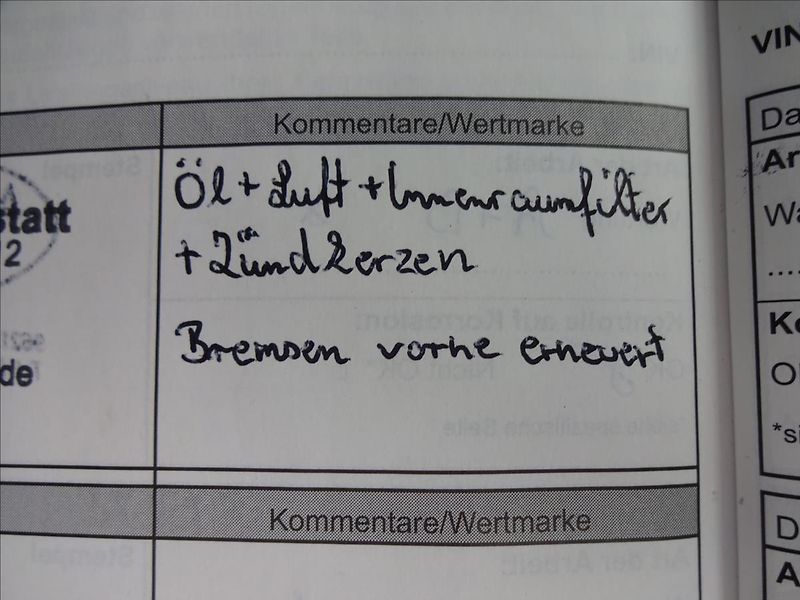 VIN
Kommentare/Wertmarke
Öl + Luft + Innenraumfilter
+ Zündkerzen
Bremsen vorne erneuert
statt
2
de
Kommentare/Wertmarke
Da
Ar
Wa
....
Ko
O
*si
D
A